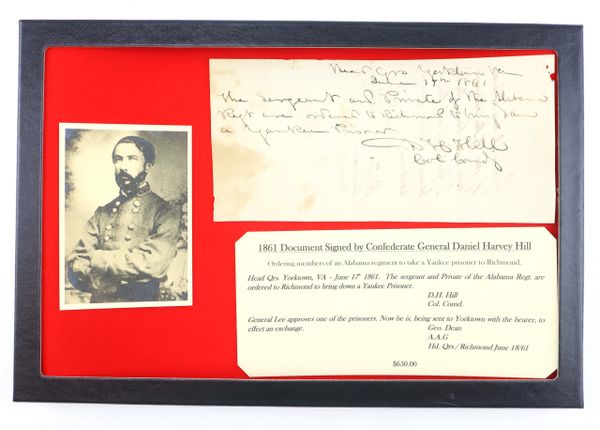 Head Qrs Yorktown Va
June 17th 1861
The Sergeant and Private of the Alabama
Regt are ordered to Richmond to bring down
a Yankee Prisoner
D H Hill
Col Comdg
1861 Document Signed by Confederate General Daniel Harvey Hill
Ordering members of an Alabama regiment to take a Yankee prisoner to Richmond.
Head Qrs. Yorktown, VA – June 17' 1861. The sergeant and Private of the Alabama Regt. are
ordered to Richmond to bring down a Yankee Prisoner.
D.H. Hill
Col. Comd.
General Lee approves one of the prisoners. Now he is, being sent to Yorktown with the bearer, to
effect an exchange.
Geo. Dean
A.A.G
Hd. Qrs / Richmond June 18/61
$650.00